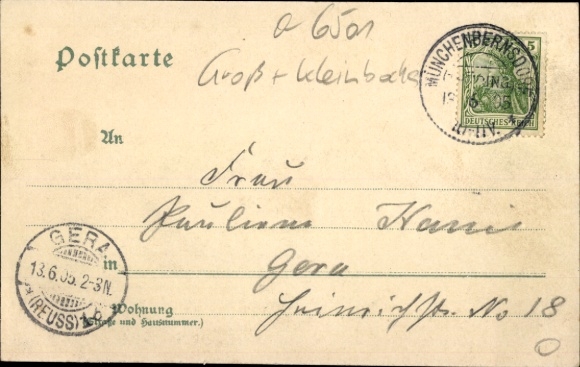 a 6501
Postkarte
Groß + Kleinbocka
MÜNCHENBERNSDORF
13 6 05
10-11V.
5
DEUTSCHES REICH
An
Frau
Pauline
Gera
in
GERA
13.6.05. 2-3N.
*(REUSS)1*c
Heinrichstr. No 18
Wohnung
(Straße und Hausnummer.)